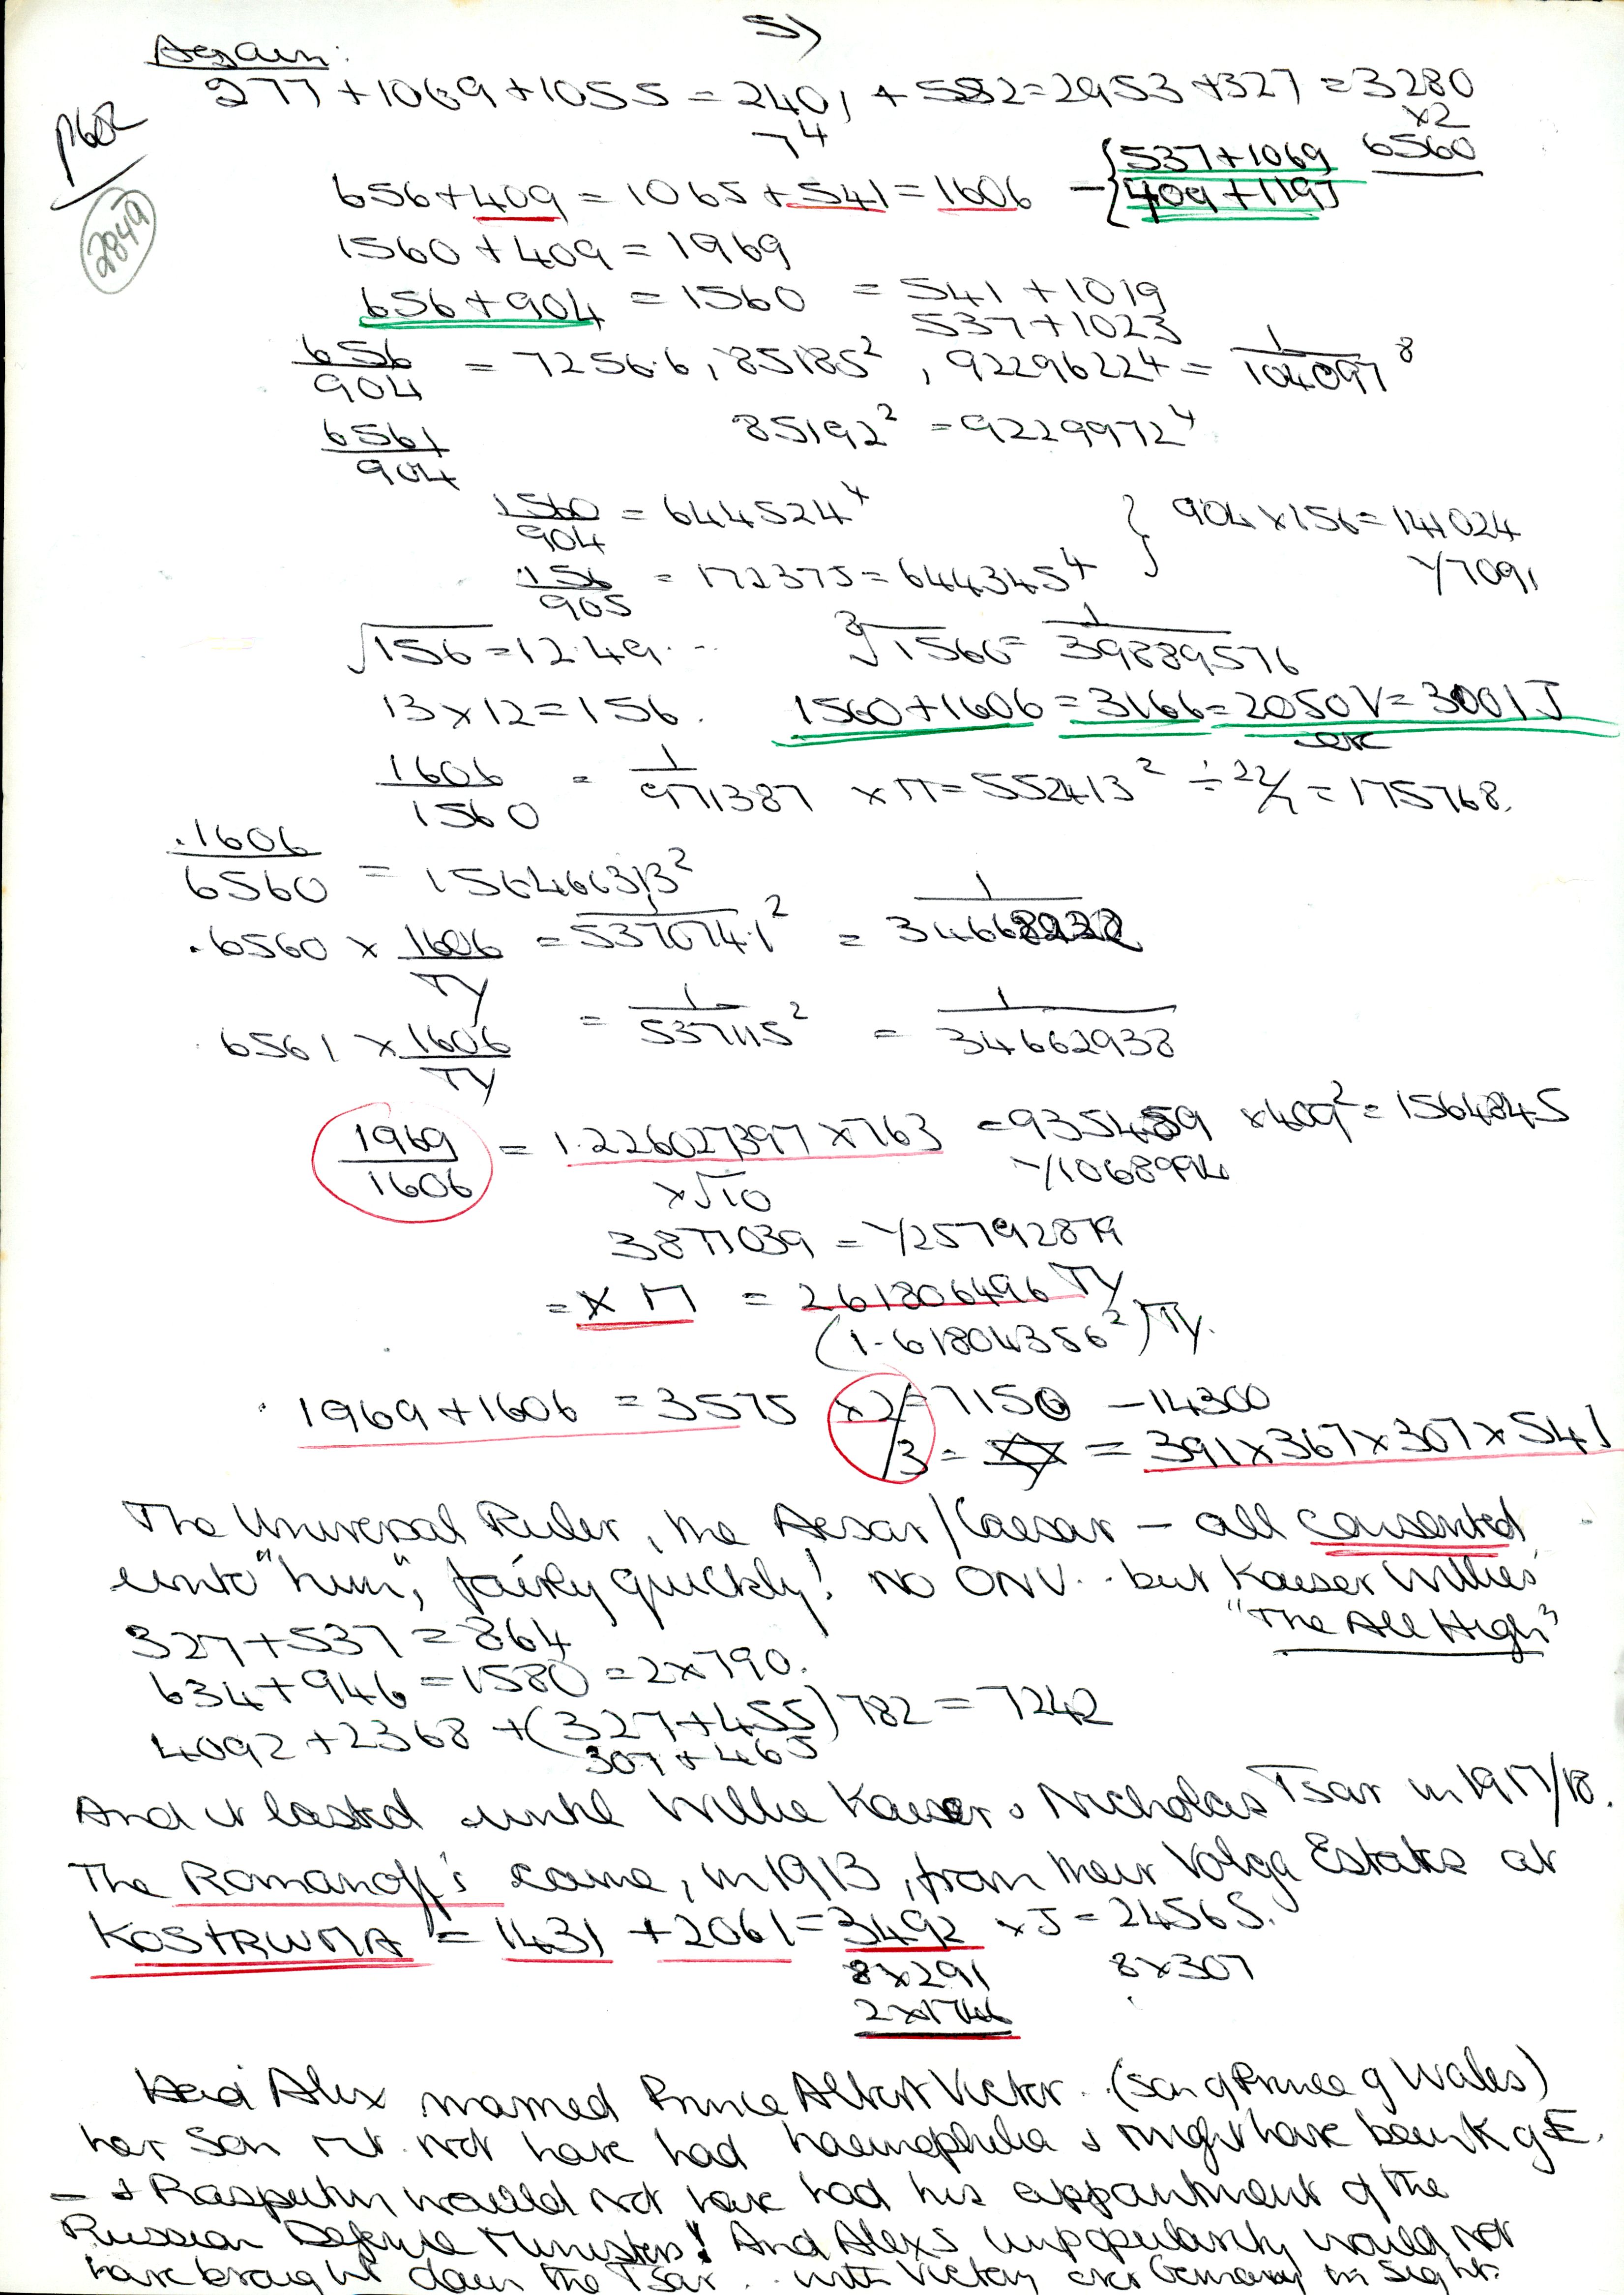 5)
Again:
277 + 1069 + 1055 = 2401 + 552 = 2953 + 327 = 3280
7⁴ ×2
p602 6560
2849
656 + 409 = 1065 + 541 = 1606 – { 537 + 1069
409 + 1197
1560 + 409 = 1969
656 + 904 = 1560 = 541 + 1019
537 + 1023
656/904 = 7256.6, 85185², 92296224 = 1/104097⁸
6561/904 85192² = 9229972⁴
1560/904 = 644524⁴ } 904 × 156 = 141024
Y7091
.156/905 = 172375 = 644345⁴
√156 = 12.49... ³√1560 = 1/39889576
13 × 12 = 156. 1560 + 1606 = 3166 = 2050V = 3001J
etc
1606/1560 = 1/971387 × Π = 552413² ÷ 22/7 = 175768.
.1606/6560 = 156466313²
.6560 × 1606/TY = 1/537074.1² = 1/34668932
.6561 × 1606/TY = 1/537115² = 1/34662938
1969/1606 = 1.226027397 × 763 = 935459 × 409² = 1564845
×√10 Y1068994
3877039 = Y25792879
= × Π = 261806496 TY
(1.61804356²)TY.
1969 + 1606 = 3575 ×2 = 7150 – 14300
/3 = = 391 × 367 × 307 × 541
The Universal Ruler, the Aesar/Caesar – all consented
unto "him", fairly quickly! NO ONV.. but Kaiser Willies
"The All High"
327 + 537 = 864
634 + 946 = 1580 = 2 × 790.
4092 + 2368 + (327 + 455) 782 = 7242
307 + 465
And it lasted until Willie Kaiser & Nicholas Tsar in 1917/18.
The Romanoff's came, in 1913, from their Volga Estates at
KOSTRWMA = 1431 + 2061 = 3492 × J = 24565.
8×291 8×307
2×1746
Had Alix married Prince Albert Victor. (son of Prince of Wales)
her son mt. not have had haemophilia & might have been K of E.
– & Rasputin would not have had his appointment of the
Russian Defense Ministers! And Alex's unpopularity would not
have brought down the Tsar.. with Victory over Germany in sight.